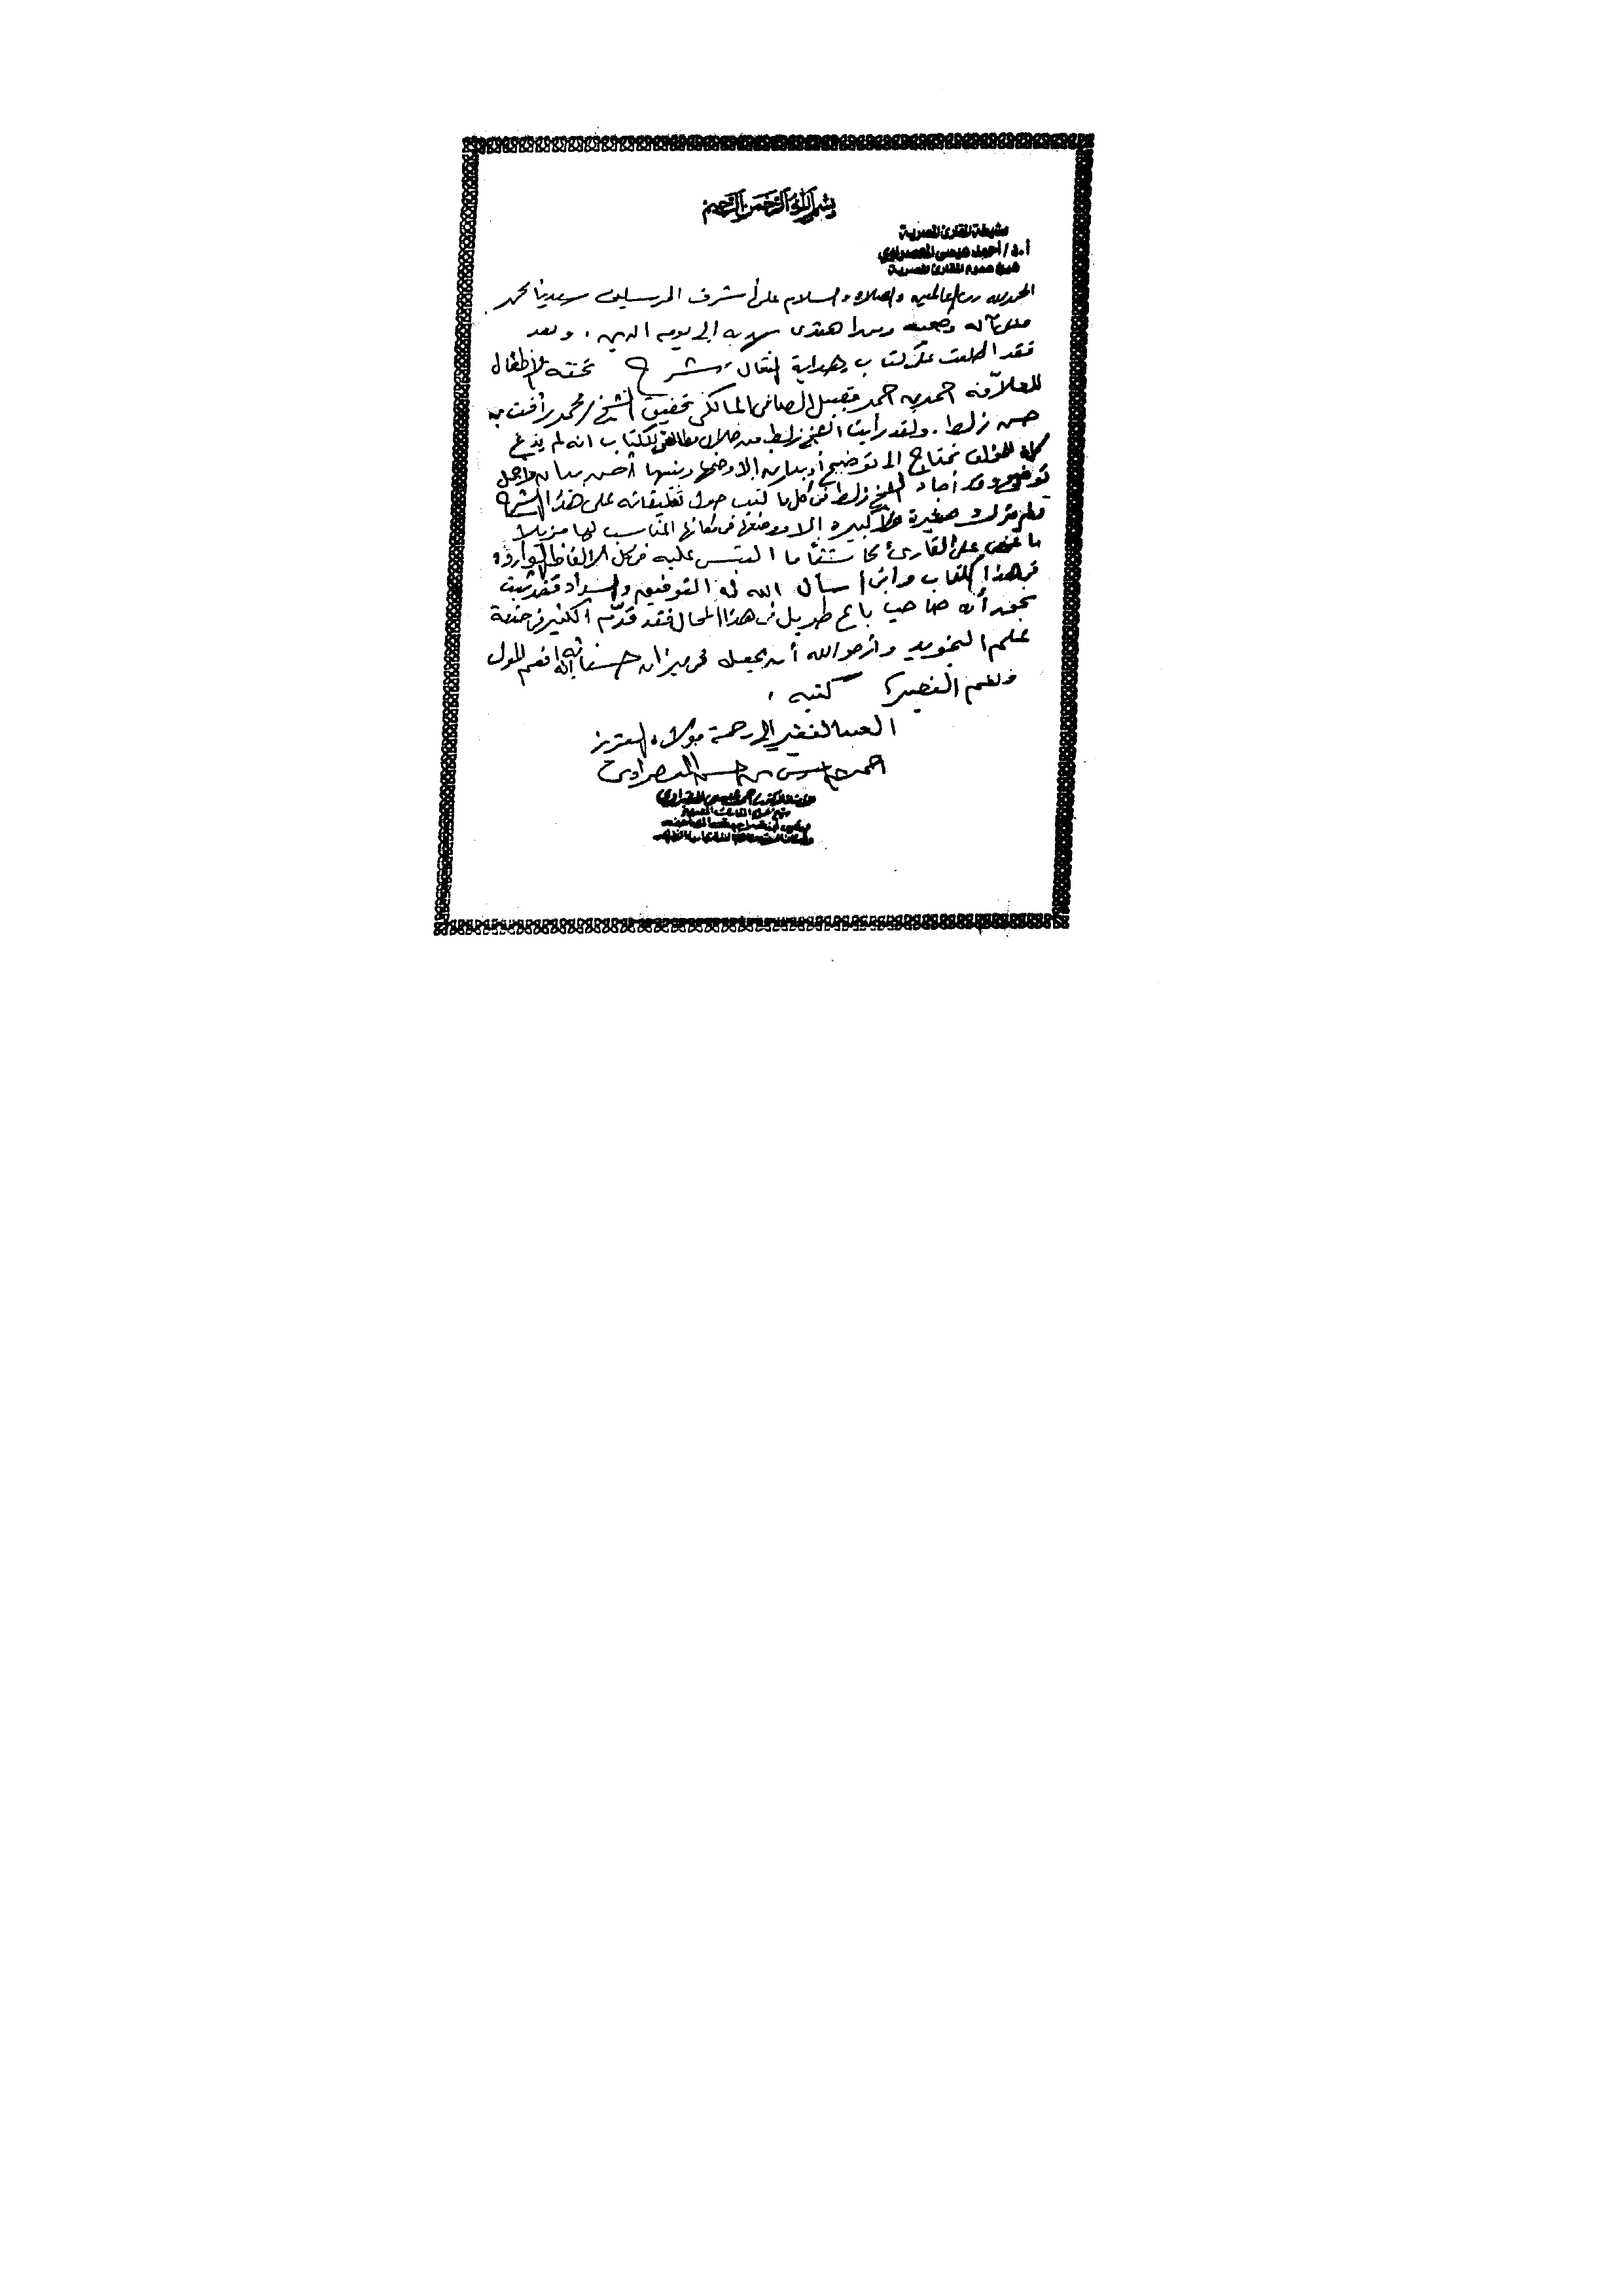 بسم الله الرحمن الرحيم
مشيخة المقارئ المصرية
أ.د/ أحمد عيسى المعصراوي
شيخ عموم المقارئ المصرية
الحمد لله رب العالمين والصلاة والسلام على أشرف المرسلين سيدنا محمد
وعلى آله وصحبه ومن اهتدى بهديه إلى يوم الدين ، وبعد
فقد اطلعت على كتاب هداية المقال شرح تحفة الأطفال
للعلامة أحمد بن أحمد مقيبل الصافى المالكى تحقيق الشيخ/ محمد رأفت بن
حسن زلط . ولقد رأيت الشيخ زلط من خلال مطالعتى للكتاب انه لم يدع
كلمة للمؤلف تحتاج الى توضيح أو بيان إلا وضحها وبينها أحسن بيان وأجمل
توضيح وقد أجاد الشيخ زلط فى كل ما كتب حول تعليقاته على هذا الشرح
فلم يترك صغيرة ولا كبيرة إلا ووضعها فى مكانها المناسب لها مزيلا
ما غمض على القارئ كاشفا ما التبس عليه من كل الألفاظ الواردة
فى هذا الكتاب وإنى أسأل الله له التوفيق والسداد فقد ثبت
بحق أنه صاحب باع طويل فى هذا المجال فقد قدّم الكثير فى خدمة
علم التجويد وأرجو الله أن يجعله فى ميزان حسناته إنه نعم المولى
ونعم النصير كتبه ،
العبد الفقير الى رحمة مولاه العزيز
أحمد عيسى حسن المعصراوى
أحمد عيسى المعصراوي